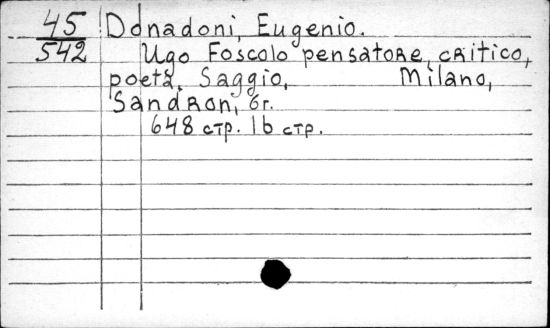 45 Donadoni, Eugenio.
542 Ugo Foscolo pensatore, critico,
poeta. Saggio, Milano,
Sandron, бг.
648 стр. 16 стр.